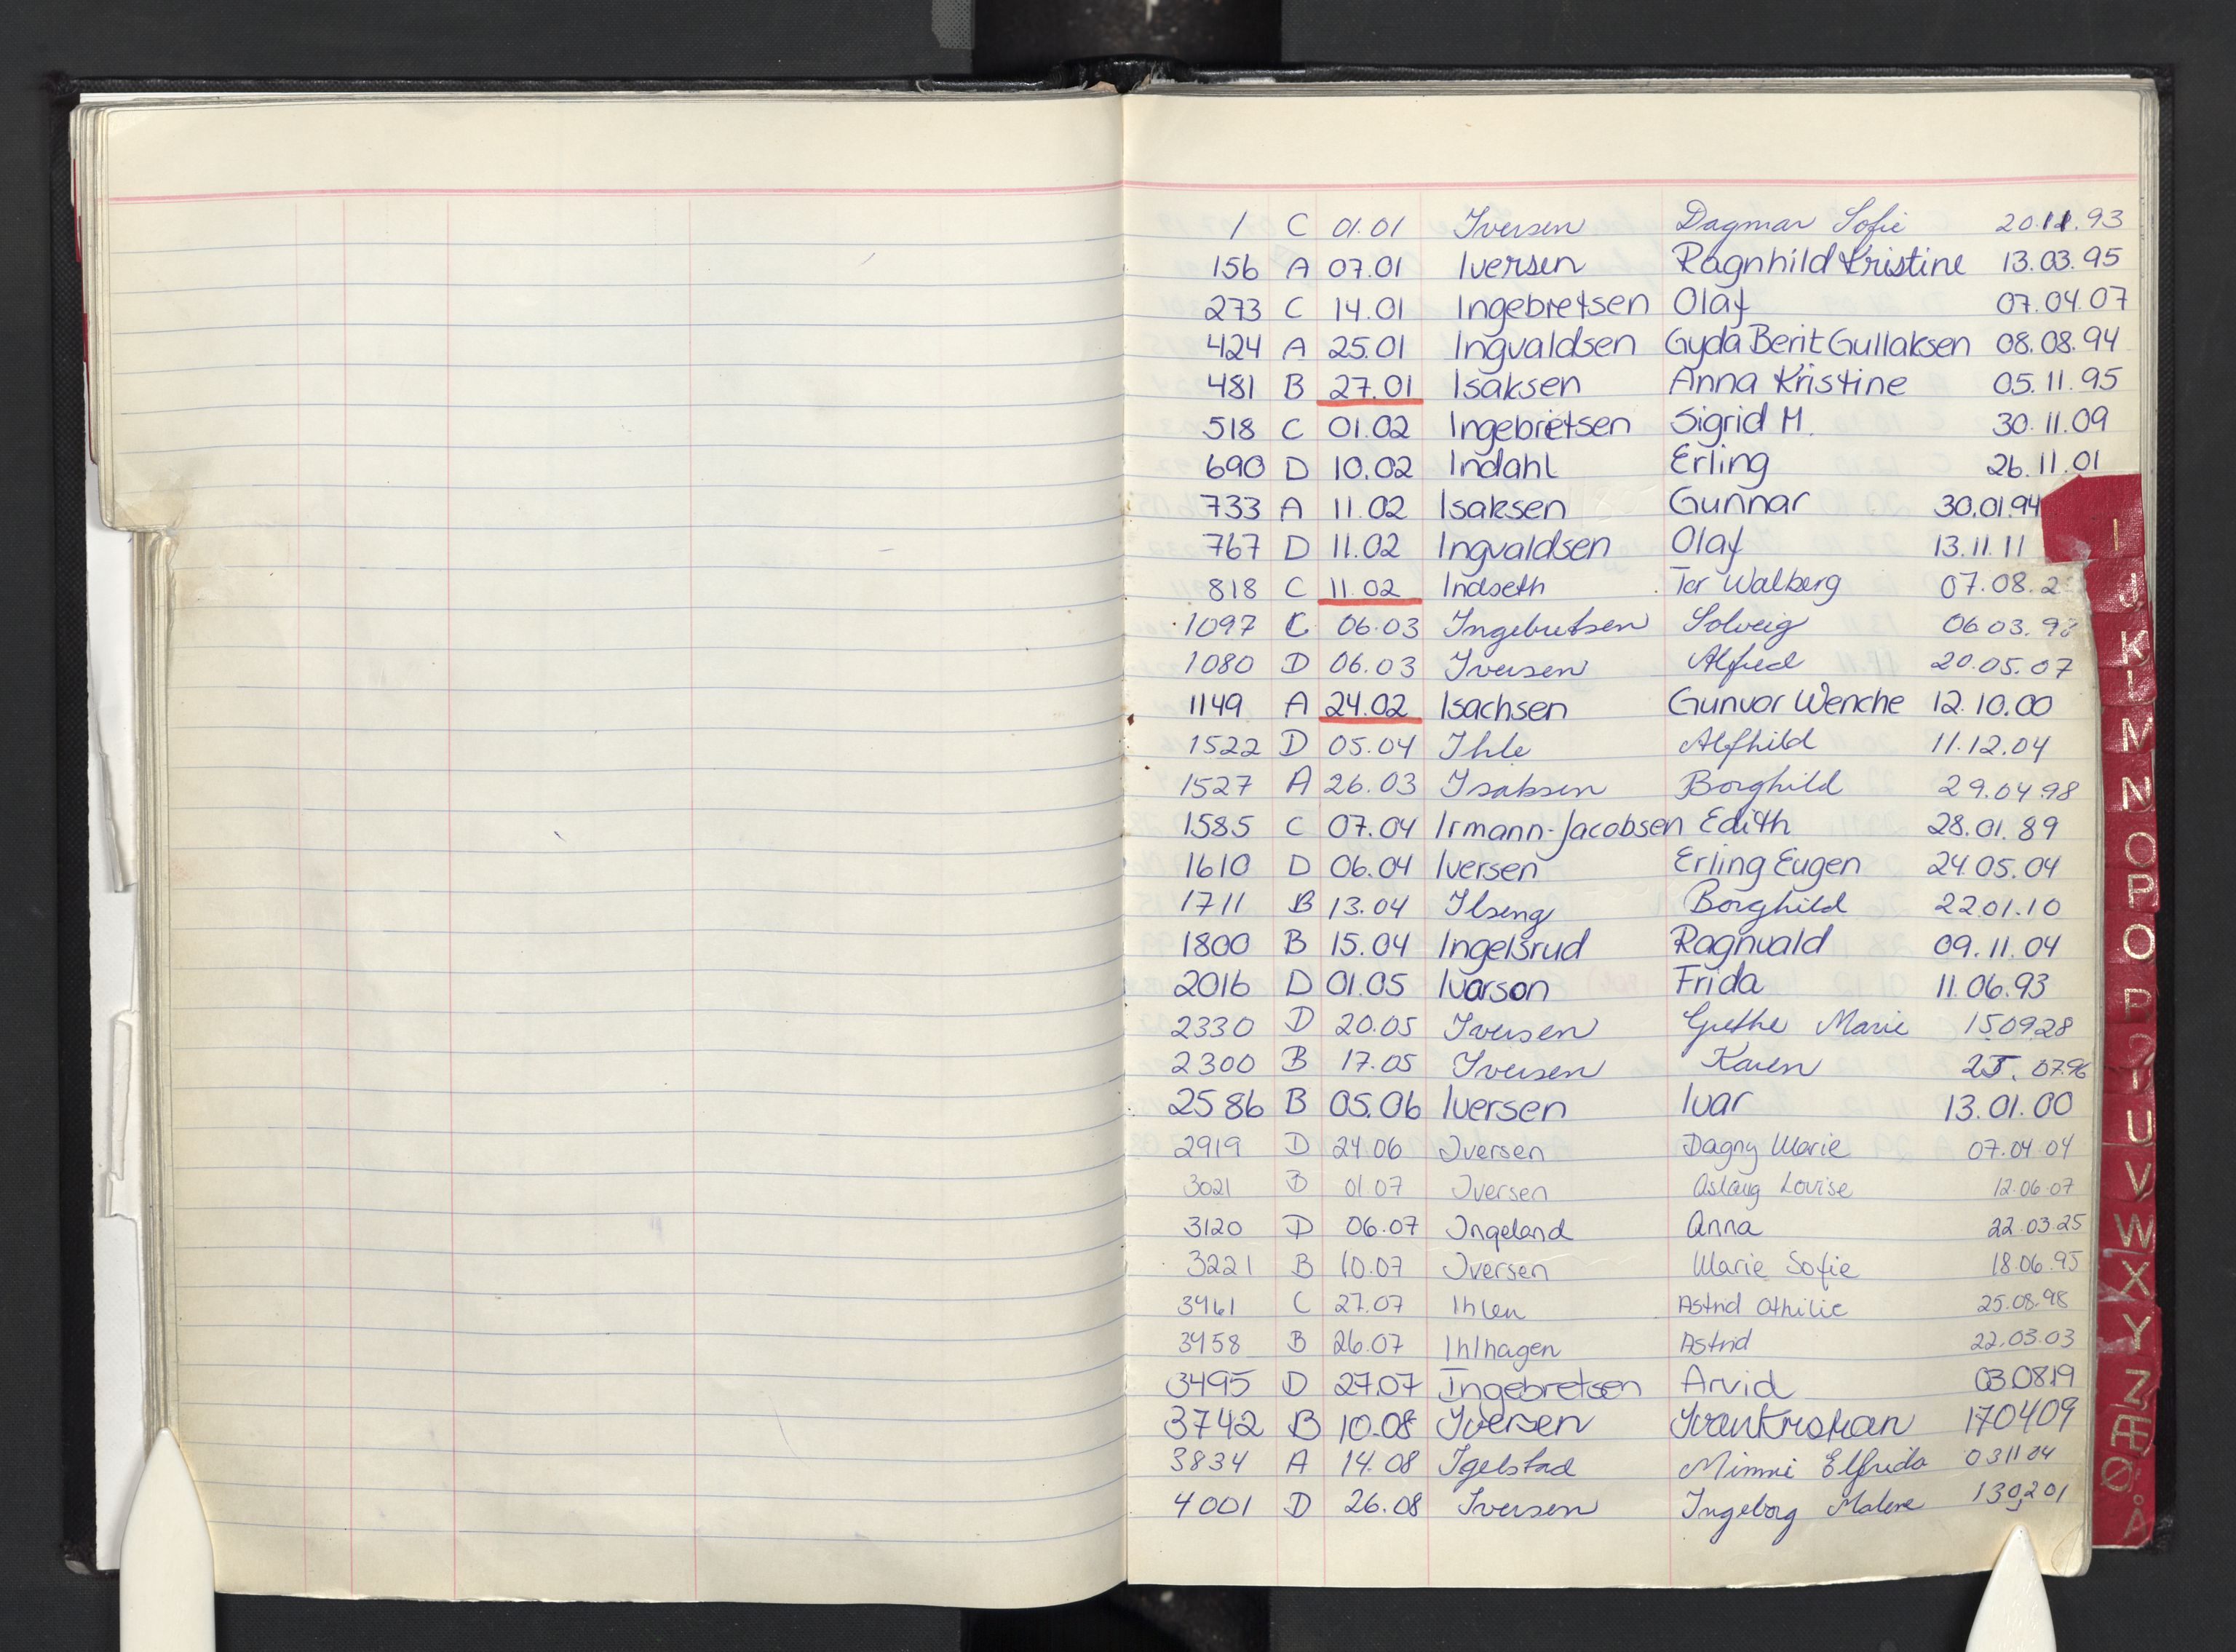 1 C 01.01 Iversen Dagmar Sofie 20.11.93
156 A 07.01 Iversen Ragnhild Kristine 13.03.95
273 C 14.01 Ingebretsen Olaf 07.04.07
424 A 25.01 Ingvaldsen Gyda Berit Gullaksen 08.08.94
481 B 27.01 Isaksen Anna Kristine 05.11.95
518 C 01.02 Ingebretsen Sigrid M. 30.11.09
690 D 10.02 Indahl Erling 26.11.01
733 A 11.02 Isaksen Gunnar 30.01.94
767 D 11.02 Ingvaldsen Olaf 13.11.11
818 C 11.02 Indseth Tor Walberg 07.08.2
1097 C 06.03 Ingebretsen Solveig 06.03.
1080 D 06.03 Iversen Alfred 20.05.07
1149 A 24.02 Isachsen Gunvor Wenche 12.10.00
1522 D 05.04 Ihle Alfhild 11.12.04
1527 A 26.03 Isaksen Borghild 29.04.98
1585 C 07.04 Irmann-Jacobsen Edith 28.01.89
1610 D 06.04 Iversen Erling Eugen 24.05.04
1711 B 13.04 Ilseng Borghild 22.01.10
1800 B 15.04 Ingelsrud Ragnvald 09.11.04
2016 D 01.05 Ivarson Frida 11.06.93
2330 D 20.05 Iversen Grethe Marie 150928
2300 B 17.05 Iversen Karen 07.96
2586 B 05.06 Iversen Ivar 13.01.00
2919 D 24.06 Iversen Dagny Marie 07.04.04
3021 B 01.07 Iversen Aslaug Lovise 12.06.07
3120 D 06.07 Ingeland Anna 22.03.25
3221 B 10.07 Iversen Marie Sofie 18.06.95
3461 C 27.07 Ihlen Astrid Othilie 25.08.98
3458 B 26.07 Ihlhagen Astrid 22.03.03
3495 D 27.07 Ingebretsen Arvid 03.08.19
3742 B 10.08 Iversen Ivar Kristian 170409
3834 A 14.08 Igelstad Minni Elfrida 031104
4001 D 26.08 Iversen Ingeborg Malene 130201
I
J
K
L
M
N
O
P
O
P
U
V
W
X
Y
Z
Æ
Ø
Å